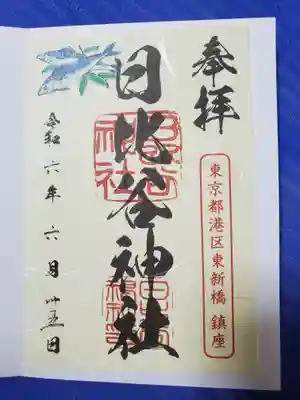 奉拝
東京都港区東新橋 鎮座
日比谷神社
令和六年六月廿五日